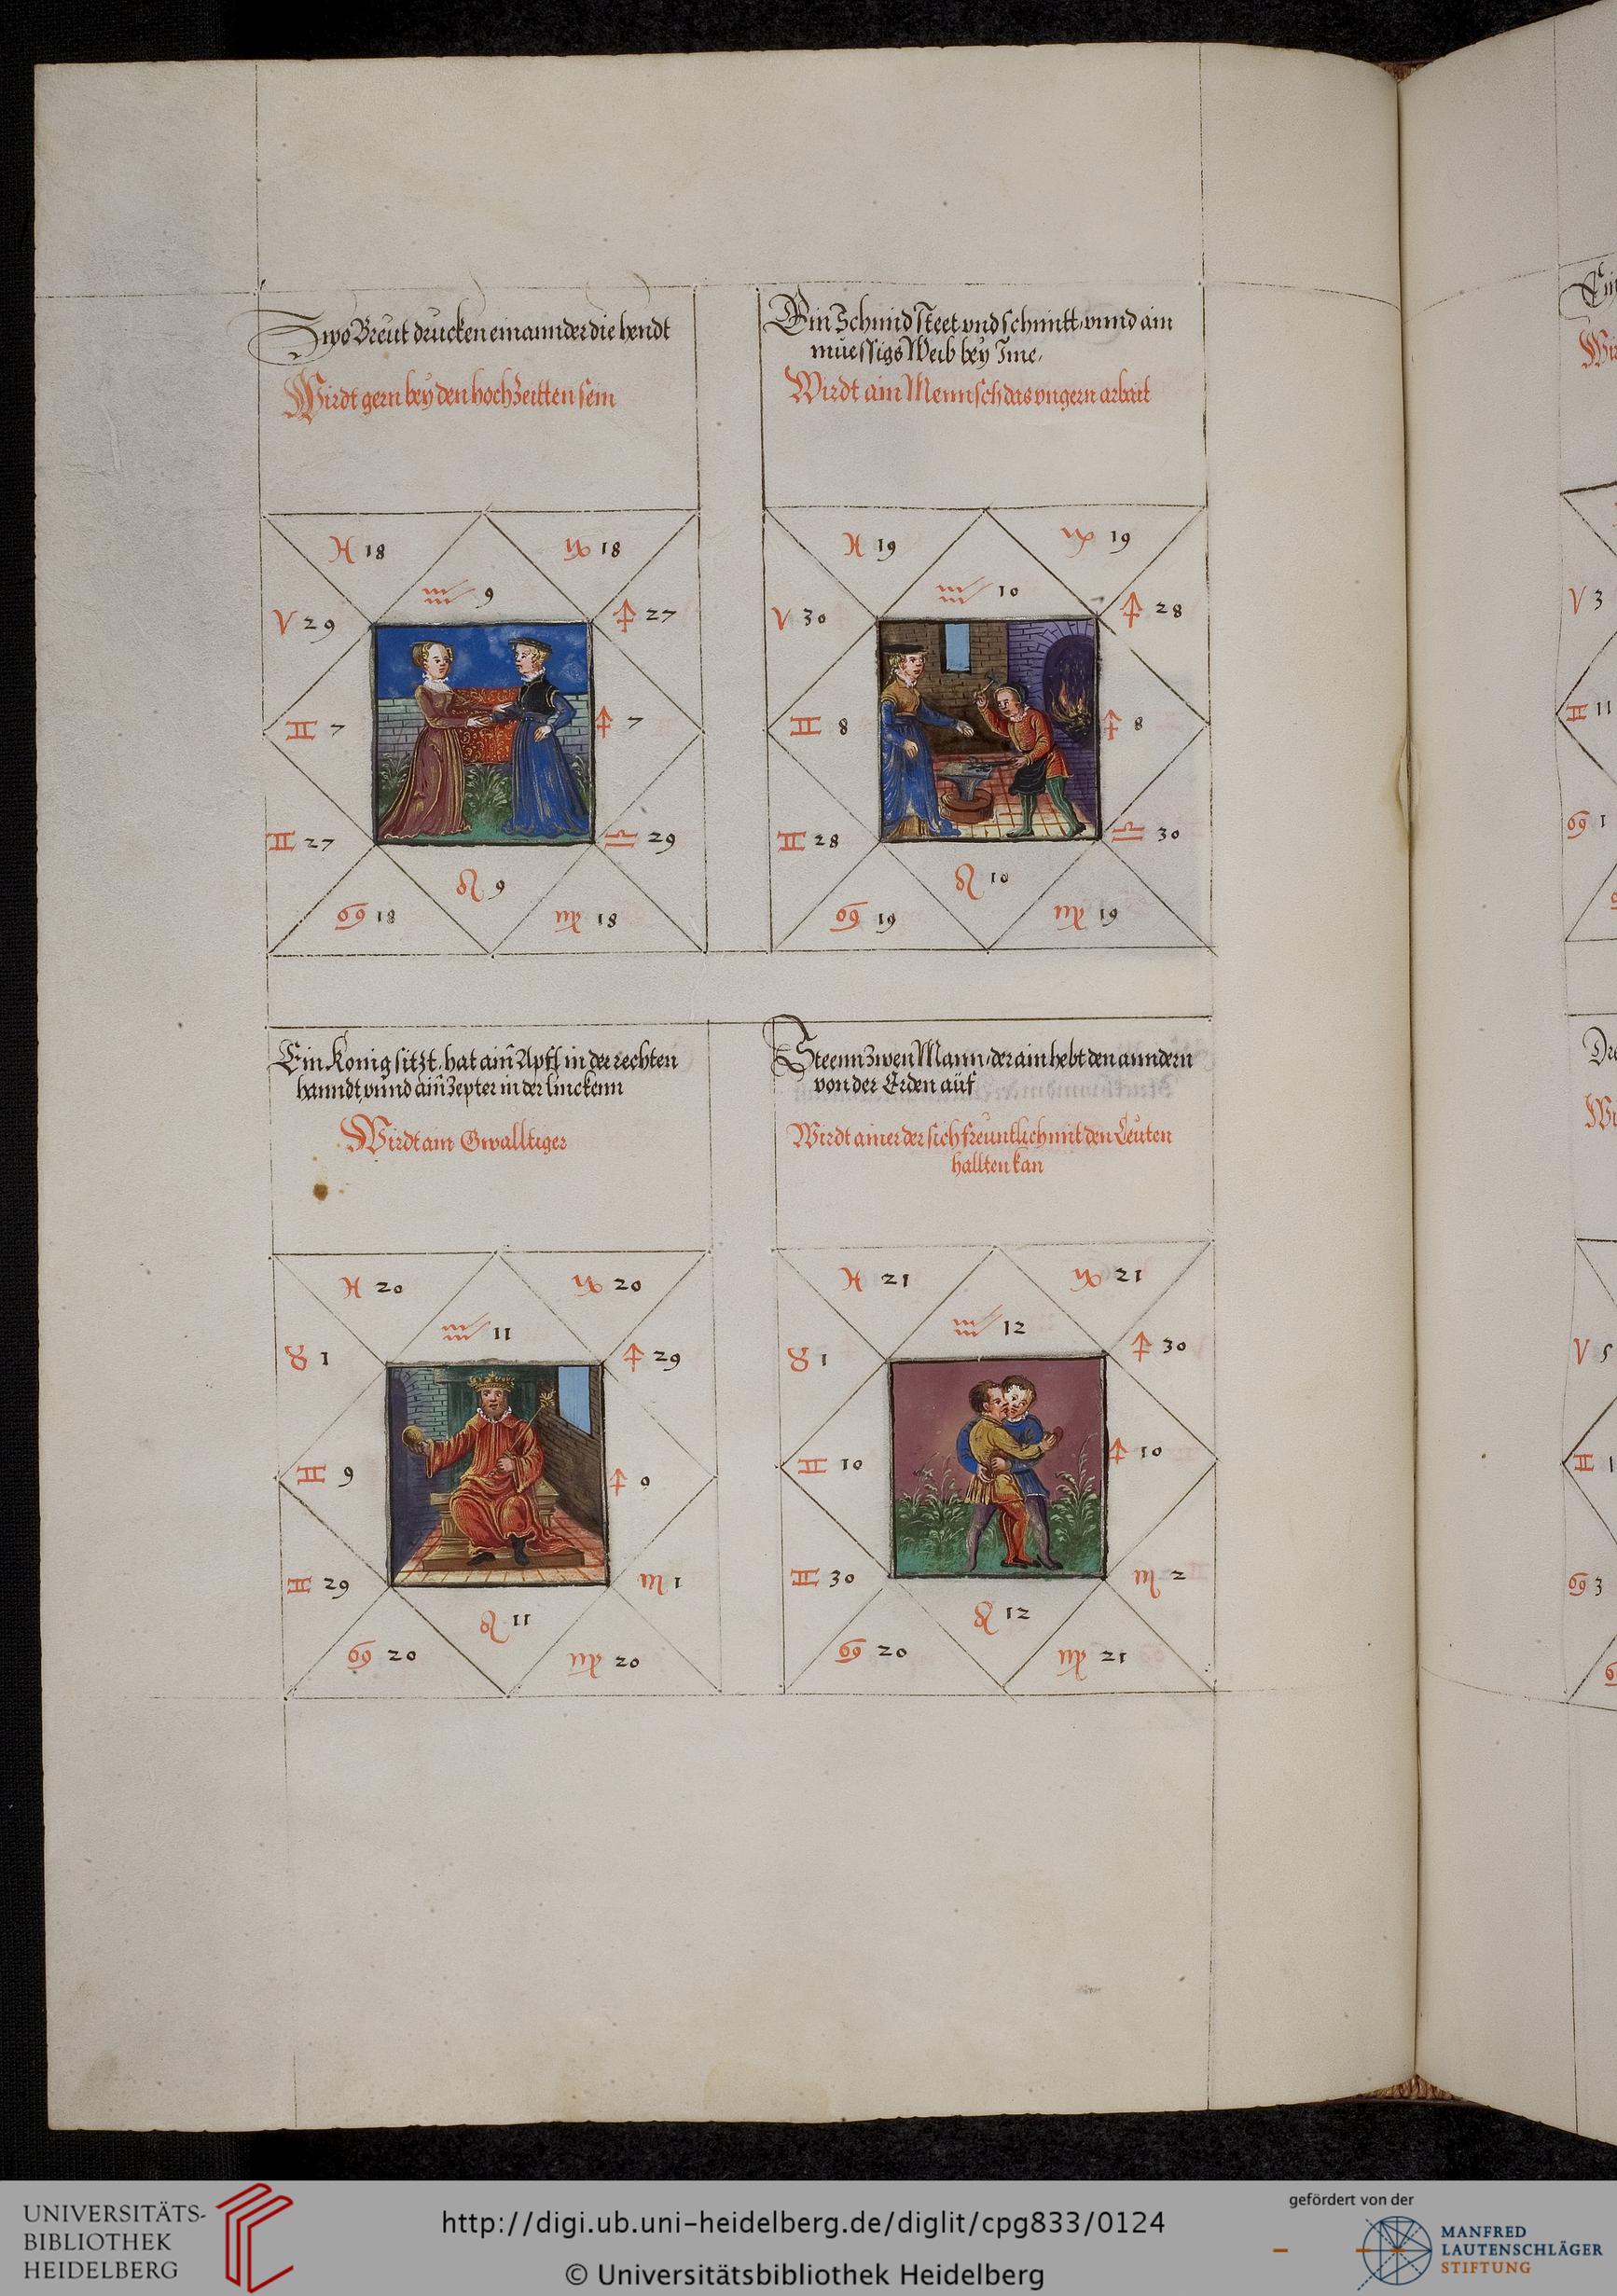 Zwo Breut drucken einannder die hendt
Wirdt gern bey den hochzeitten sein
♓ 18
♑ 18
♒ 9
♈ 29
♐ 27
♊ 7
♐ 7
♊ 27
♎ 29
♌ 9
♋ 18
♍ 18
Ein Schmid steet vnd schmitt, vnnd ain
muessigs Weib bey Ime,
Wirdt ain Mennsch das vngern arbait
♓ 19
♑ 19
♒ 10
♈ 30
♐ 28
♊ 8
♐ 8
♊ 28
♎ 30
♌ 10
♋ 19
♍ 19
Ein Konig sitzt, hat ain Apfl in der rechten
hanndt, vnnd ain Zepter in der linckenn
Wirdt ain Gwalltiger
♓ 20
♑ 20
♒ 11
♉ 1
♐ 29
♊ 9
♐ 9
♊ 29
♏ 1
♌ 11
♋ 20
♍ 20
Steenn zwen Mann, der ain hebt den anndern
von der Erden auf
Wirdt ainer der sich freuntlich mit den Leuten
hallten kan
♓ 21
♑ 21
♒ 12
♉ 1
♐ 30
♊ 10
♐ 10
♊ 30
♏ 2
♌ 12
♋ 20
♍ 21
♈ 3
♊ 11
♋ 1
♈ 5
♋ 3
UNIVERSITÄTS-
BIBLIOTHEK
HEIDELBERG
http://digi.ub.uni-heidelberg.de/diglit/cpg833/0124
© Universitätsbibliothek Heidelberg
gefördert von der
MANFRED
LAUTENSCHLÄGER
STIFTUNG